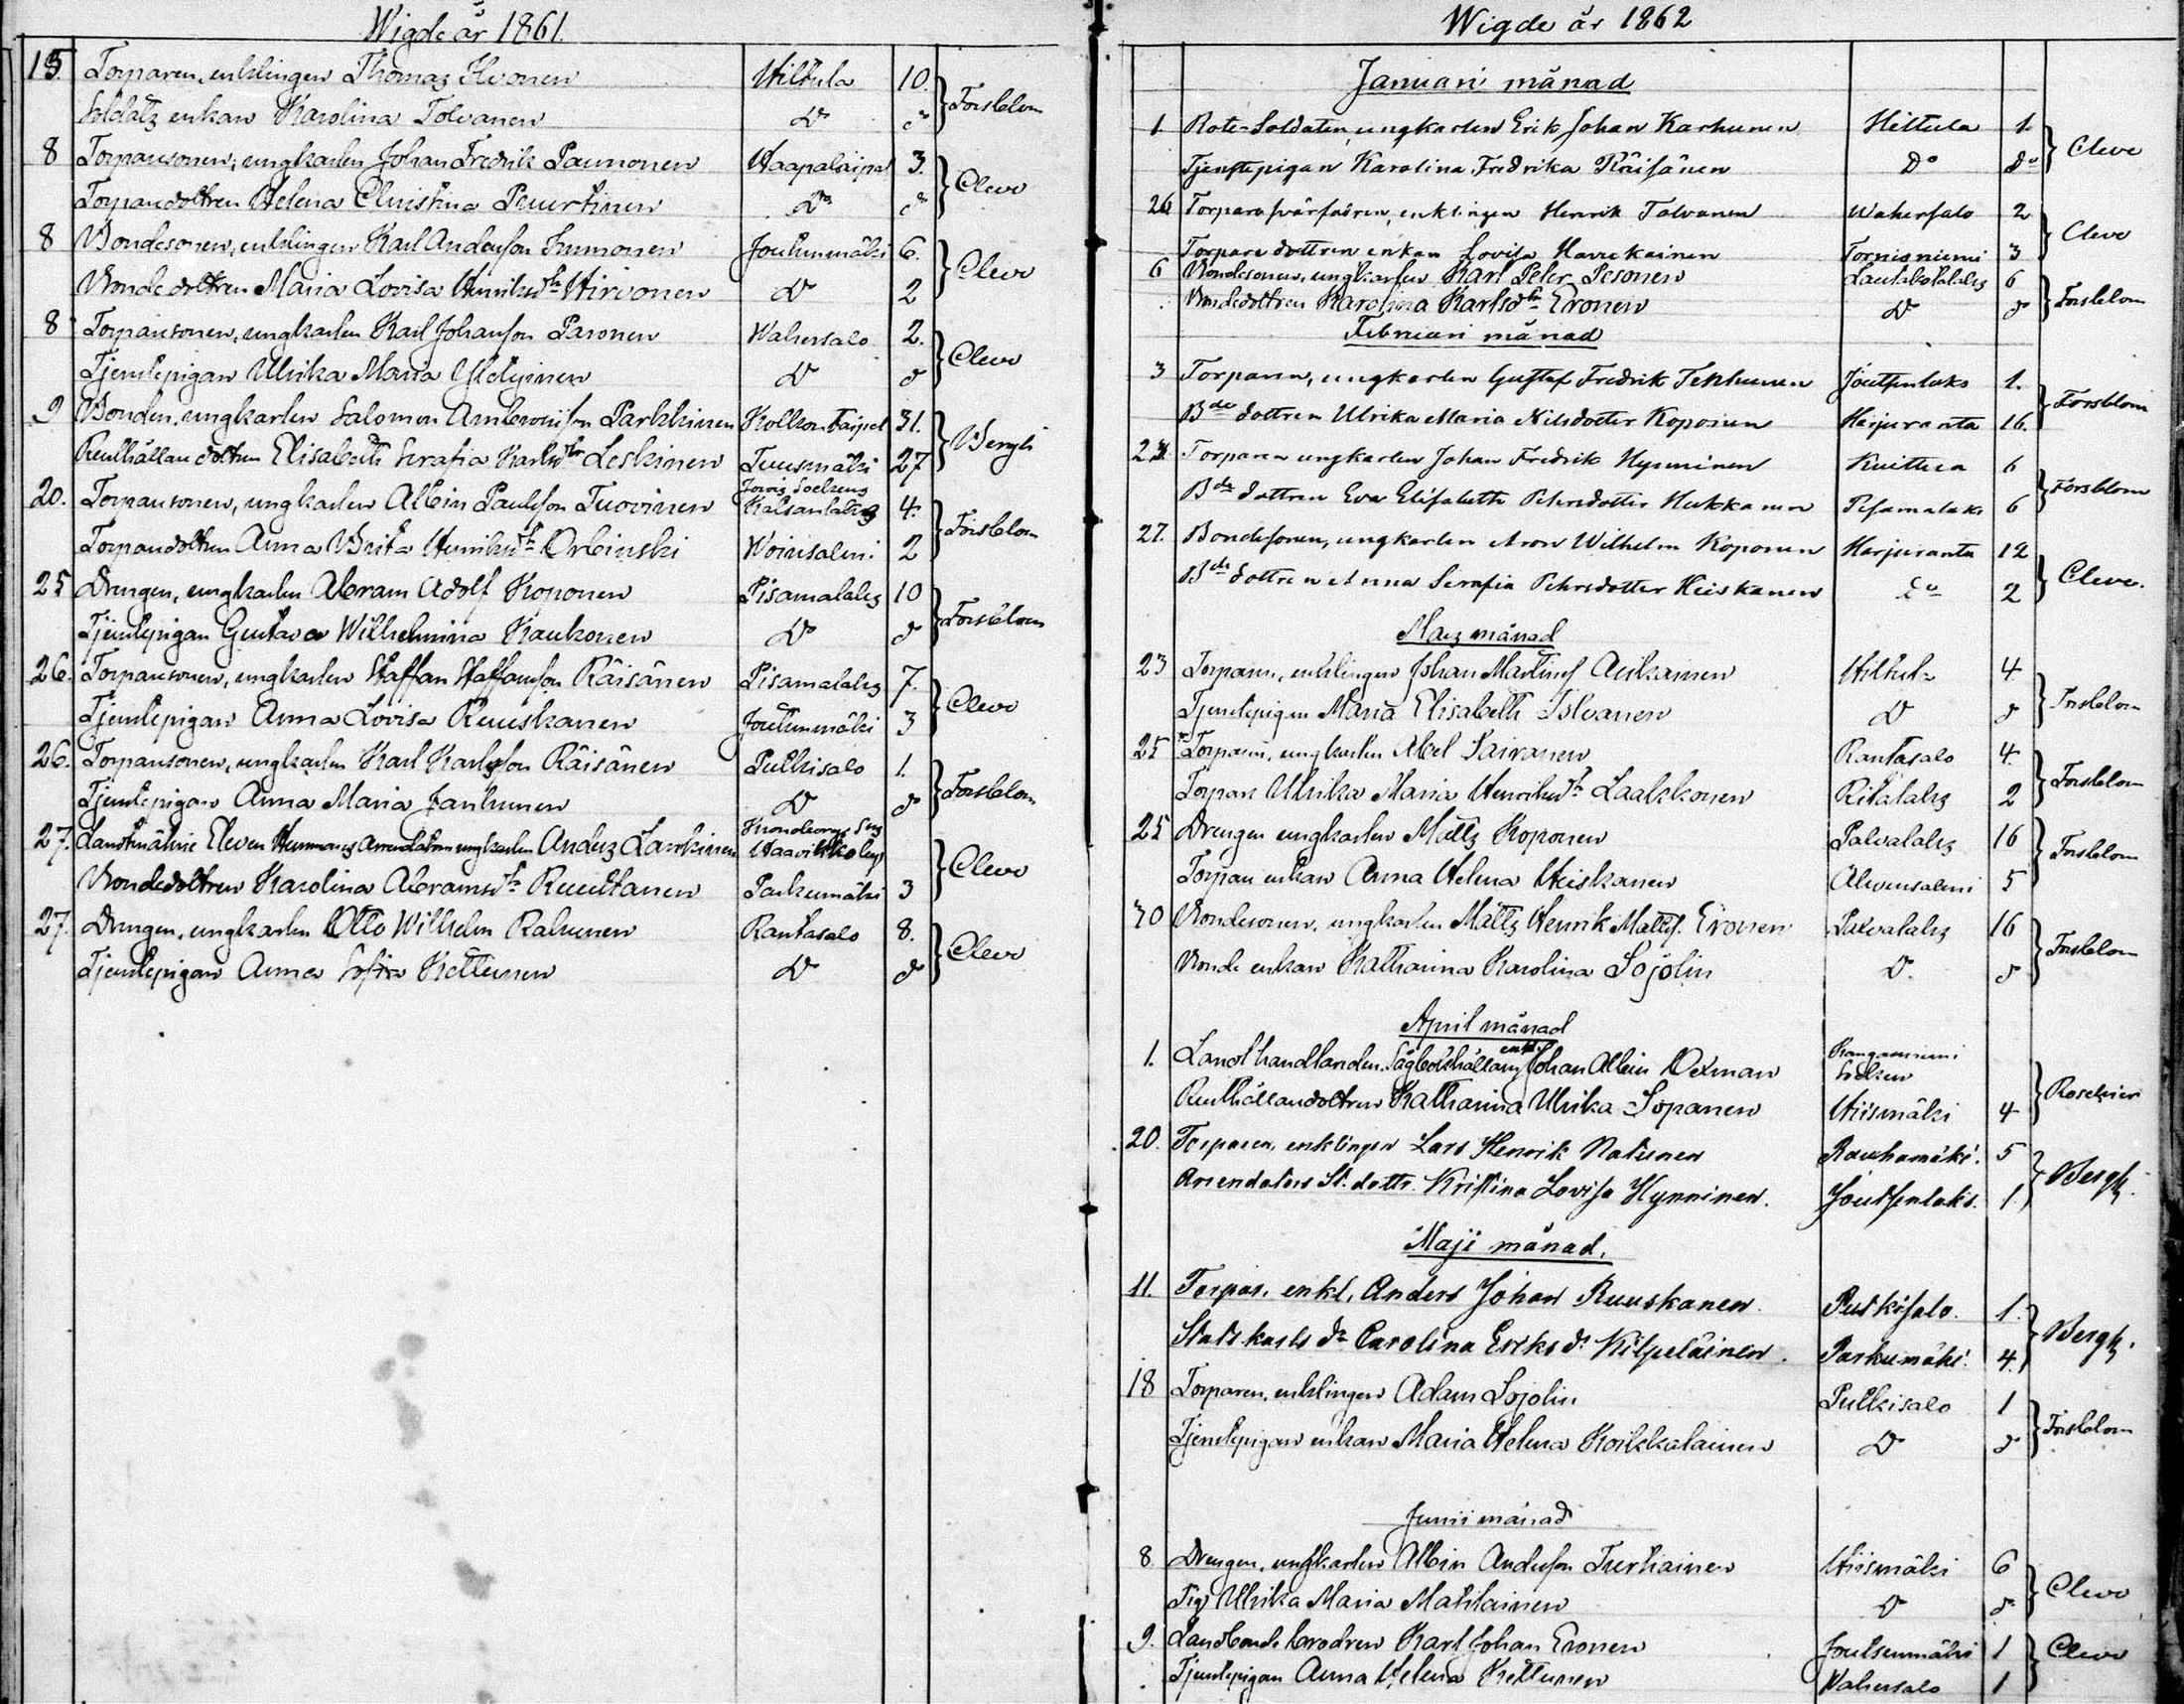 Wigde år 1861.
15. Torparen, enklingen Thomas Ilvonen Hiltula 10. } Forsblom
Soldats enkan Karolina Tolvanen Do do
8 Torparesonen, ungkarlen Johan Fredrik Paunonen Haapataipal 3. } Cleve
Torparedottren Helena Christina Puurtinen Do do
8 Bondesonen, enklingen Karl Andersson Immonen Joutsenmäki 6. } Cleve
Bondedottren Maria Lovisa Henriksdr Hirvonen Do 2
8 Torparesonen, ungkarlen Karl Johansson Paronen Wahersalo 2. } Cleve
Tjenstepigan Ulrika Maria Do do
9 Bonden, ungkarlen Salomon Parkkinen Kolkontaipal 31. } Bergh
Rusthållaredottren Elisabeth Serafia Karlsdr Leskinen Tuusmäki 27
Jorois Socken
20. Torparesonen, ungkarlen Albin Paulsson Tuovinen 4. } Forsblom
Torparedottren Anna Brita Henriksdr Orbinski Woinsalmi 2
25 Drengen, ungkarlen Abram Adolf Koponen Pisamalaks 10 } Forsblom
Tjenstepigan Gustava Wilhelmina Kaukonen Do do
26. Torparesonen, ungkarlen Staffan Staffansson Räisänen Pisamalaks 7. } Cleve
Tjenstepigan Anna Lovisa Ruuskanen Joutsenmäki 3
26. Torparesonen, ungkarlen Karl Karlsson Räisänen Putkisalo 1. } Forsblom
Tjenstepigan Anna Maria Janhunen Do do
27. Landtmäterie Eleven Hemmans Arrendatorn ungkarlen Anders Laukkinen } Cleve
Bondedottren Karolina Abramsdr Ruuttanen Parkumäki 3
27. Drengen, ungkarlen Otto Wilhelm Rahunen Rantasalo 8. } Cleve
Tjenstepigan Anna Sofia Kettunen Do do
Wigde år 1862
Januari månad
1 Rote-Soldaten, ungkarlen Erik Johan Karhunen Hiltula 1. } Cleve
Tjenstepigan Karolina Fredrika Räisänen Do do
26 Torpare svärfadren, enklingen Henrik Tolvanen Wahersalo 2 } Cleve
Torpare dottren enkan Lovisa Haverkainen Tornioniemi 3
6 Bondesonen, ungkarlen Karl Peter Pesonen Lautakotalaks 6 } Forsblom
Bondedottren Karolina Karlsdr Eronen Do do
Februari månad
3 Torparen, ungkarlen Gustaf Fredrik Tenhunen Joutsenlaks 1. } Forsblom
Bde dottren Ulrika Maria Nilsdotter Koponen Harjuranta 16.
Torparen ungkarlen Johan Fredrik Hynninen Kuittua 6 } Forsblom
Bde dottren Eva Elisabeth Pehrsdotter Hukkanen Pisamalaks 6
27. Bondesonen, ungkarlen Aron Wilhelm Koponen Harjuranta 12 } Cleve.
Bde dottren Anna Serafia Pehrsdotter Heiskanen Do 2
Mars månad
23 Torparen, enklingen Johan Martinss Auikainen Hiltula 4. } Forsblom
Tjenstepigan Maria Elisabeth Tolvanen Do do
25 Torparen, ungkarlen Abel Sairanen Rantasalo 4. } Forsblom
Torpare Ulrika Maria Henriksdr Laakkonen Ritalaks 2
25 Drengen ungkarlen Matts Koponen Palvalaks 16 } Forsblom
Torpare enkan Anna Helena Heiskanen Ahvensalmi 5
30 Bondesonen, ungkarlen Matts Henrik Mattss. Eronen Palvalaks 16 } Forsblom
Bonde enkan Katharina Karolina Sojolin Do. do
April månad
1. Landthandlanden, Sågbokhållaren enkl. Johan Albin Dexman Kangasniemi Socken } Roschier
Rusthållaredottren Katharina Ulrika Sopanen Hiismäki 4
20. Torparen, enklingen Lars Henrik Natunen Rauhamäki. 5 } Bergh.
Arrendators St. dottr. Kristina Lovisa Hynninen. Joutsenlaks. 1.
Maji månad.
11. Torpar. enkl. Anders Johan Ruuskanen. Putkisalo. 1. } Bergh.
Stats karls dr Carolina Eriks dr Kilpeläinen. Parkumäki. 4.
18 Torparen, enklingen Adam Sojolin Putkisalo 1 } Forsblom
Tjenstepigan enkan Maria Helena Koikkalainen Do do
Junii månad
8. Drengen, ungkarlen Albin Andersson Turtiainen Hiismäki 6 } Cleve
Pig. Ulrika Maria Mahlainen Do do
9. Landbonde brodren Karl Johan Eronen Joutsenmäki 1 } Cleve
Tjenstepigan Anna Helena Kettunen Wahersalo 1